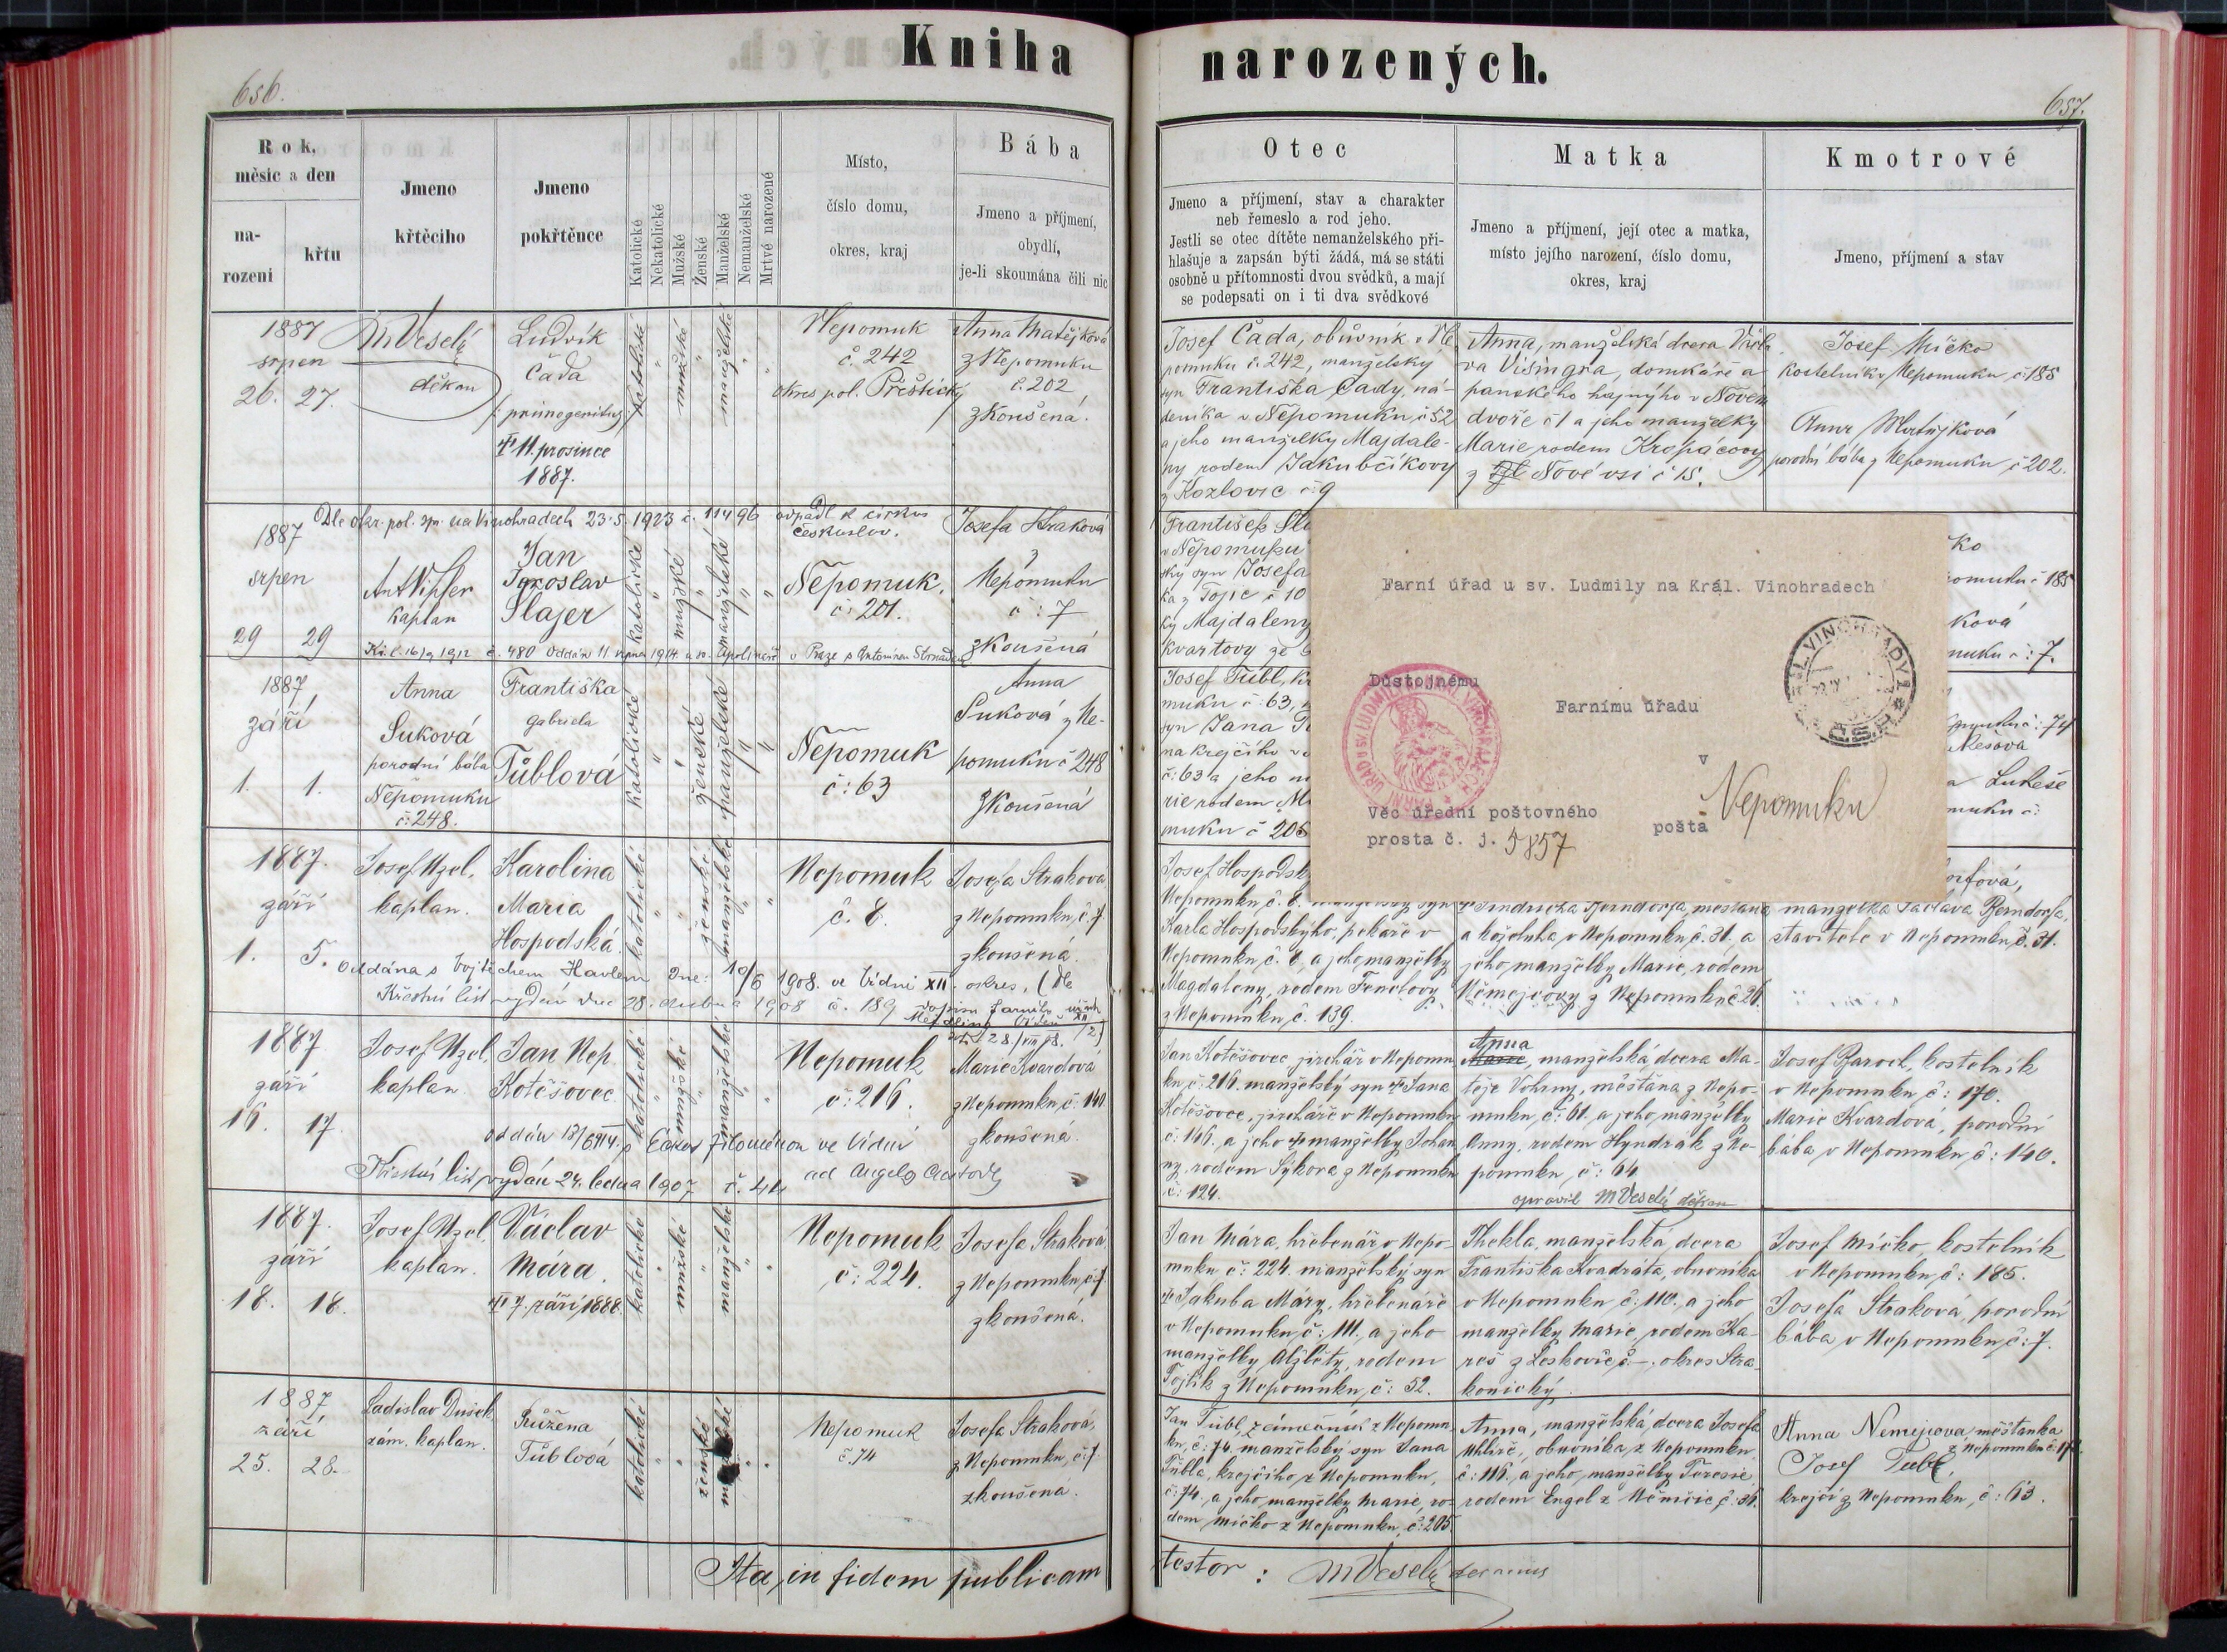 Kniha
narozených.
656.
657.
Rok,
měsíc a den
na-
rozeni
křtu
Jmeno
křtěciho
Jmeno
pokřtěnce
Katolické
Nekatolické
Mužské
Ženské
Manželské
Nemanželské
Mrtvé narozené
Místo,
číslo domu,
okres, kraj
Bába
Jmeno a příjmení,
obydlí,
je-li skoumána čili nic
Otec
Jmeno a příjmení, stav a charakter
neb řemeslo a rod jeho.
Jestli se otec dítěte nemanželského při-
hlašuje a zapsán býti žádá, má se státi
osobně u přítomnosti dvou svědků, a mají
se podepsati on i ti dva svědkové
Matka
Jmeno a příjmení, její otec a matka,
místo jejího narození, číslo domu,
okres, kraj
Kmotrové
Jmeno, příjmení a stav
1887
srpen
26. 27.
MVeselý
děkan
Ludvík
Čada
(primogenitus)
11. prosince
1887.
katolické
mužské
manželské
Nepomuk
č. 242
okres pol. Přeštický
Anna Matějková
z Nepomuku
č. 202
zkoušená.
Josef Čada, obůvník v Ne
pomuku č. 242, manželský
syn Františka Čady, ná-
deníka v Nepomuku č 52
a jeho manželky Majdale-
ny rodem Jakubčíkovy
z Kozlovic č: 9
Anna, manželská dcera Václa
va Visingra, domkáře a
panského hajného v Novém
dvoře č 1 a jeho manželky
Marie rodem Kropáčovy
z Nové vsi č 15.
Josef Mičko
kostelník v Nepomuku č: 185
Anna Matějková
porodní bába z Nepomuku č 202.
Dle okr. pol. spr. na Vinohradech 23.5. 1923 č. 11496 odpadl k církvi
českoslov.
1887
srpen
29 29
kaplan
Jan
Jaroslav
Slajer
katolické
mužské
manželské
Nepomuk.
č: 201.
Josefa Straková
z
Nepomuku
č: 7
zkoušená
Kř. l. 16/9 1912 č. 480 Oddán 11 srpna 1914 u sv. Apolináře v Praze s Antonínou Strnadovou
František Sla
v Nepomuku
ský syn Josefa
ka z Tojic č 10
ky Majdaleny
kvartovy ze
ko
omuku č 185
ková
muku č: 7.
1887
září
1. 1.
Anna
Suková
porodní bába
Nepomuku
č: 248.
Františka
Gabriela
Tůblová
katolické
ženské
manželské
Nepomuk
č: 63
Anna
Suková z Ne-
pomuku č 248
zkoušená
Josef Tübl, kr
muku č: 63,
syn Jana T
na krejčího v
č: 63 a jeho m
rie rodem M
muku č 205
č: 74
a Lukeše
muku č:
Farní úřad u sv. Ludmily na Král. Vinohradech
Důstojnému
Farnímu úřadu
v
Nepomuku
pošta
Věc úřední poštovného
prosta č. j. 5857
1887.
září
1. 5.
Josef Uzel,
kaplan.
Karolina
Maria
Hospodská
katolické
ženské
manželské
Nepomuk
č. 8.
Josefa Straková
z Nepomuku, č. 7.
zkoušená.
Oddána s Vojtěchem Havlem dne: 10/6 1908. ve Vídni XII. okres, (dle
Křestní list vydán dne 28. dubna 1908 č. 189
Josef Hospodsk
Nepomuku, č. 8. manželský syn
Karla Hospodského, pekaře v
Nepomuku, č. 8, a jeho manželky
Magdaleny, rodem
z Nepomuku, č. 139.
Jindřicha Berndorfa, měšťana
a koželuha v Nepomuku, č. 31. a
jeho manželky Marie, rodem
Němejcovy z Nepomuku č 26.
orfová,
manželka Václava Berndorfa,
stavitele v Nepomuku, č. 31.
1887
září
16. 17.
Josef Uzel,
kaplan.
Jan Nep.
Kotěšovec.
katolické
mužské
manželské
Nepomuk
č: 216.
Marie Kvardová
z Nepomuku, č: 140.
zkoušená.
Křestní list vydán 24. ledna 1907 č. 44
Jan Kotěšovec jirchář v Nepomu-
ku, č: 216. manželský syn Jana
Kotěšovce, jircháře v Nepomuku
č: 146., a jeho manželky Johan
ny, rodem Sýkora z Nepomuku
č: 124.
Anna
Marie, manželská, dcera Ma-
těje Vohrny, měšťana z Nepo-
muku, č: 61. a jeho manželky
Anny, rodem Hyndrak z Ne-
pomuku, č: 64
opravil MVeselý děkan
Josef Baroch, kostelník
v Nepomuku, č: 170.
Marie Kvardová, porodní
bába v Nepomuku, č: 140.
1887.
září
18. 18.
Josef Uzel,
kaplan.
Václav
Mára.
7. září 1888.
katolické
mužské
manželské
Nepomuk
č: 224.
Josefa Straková,
z Nepomuku, č: 7.
zkoušená.
Jan Mára, hřebenář v Nepo-
muku č: 224. manželský syn
Jakuba Máry, hřebenáře
v Nepomuku, č: 111., a jeho
manželky Alžběty, rodem
Tojlík z Nepomuku, č: 52.
Thekla, manželská, dcera
Františka Kvadráta, obuvníka
v Nepomuku č: 110., a jeho
manželky Marie, rodem Ka-
reš z Leskovic, č. –. okres Stra-
konický.
Josef Mičko, kostelník
v Nepomuku, č: 185.
Josefa Straková, porodní
bába v Nepomuku, č: 7.
1887
září
25. 28.
Ladislav Dušek
zám. kaplan.
Růžena
Tůblová
katolické
ženské
manželské
Nepomuk
č. 74
Josefa Straková,
z Nepomuku, č: 7.
zkoušená.
Jan Tübl, z Nepomu-
ku, č: 74. manželský syn Jana
Tübla, krejčího z Nepomuku,
č: 74., a jeho manželky Marie, ro-
dem Mičko z Nepomuku, č: 205.
Anna, manželská, dcera Josefa
Uhlíře, obuvníka, z Nepomuku
č: 116., a jeho manželky Teresie
rodem Engel z Měnčic č: 36.
Anna Němejcova, měšťanka
z Nepomuku č:
Josef Tübl,
krejčí z Nepomuku, č: 63.
Ita, in fidem publicam
testor: MVeselý decanus